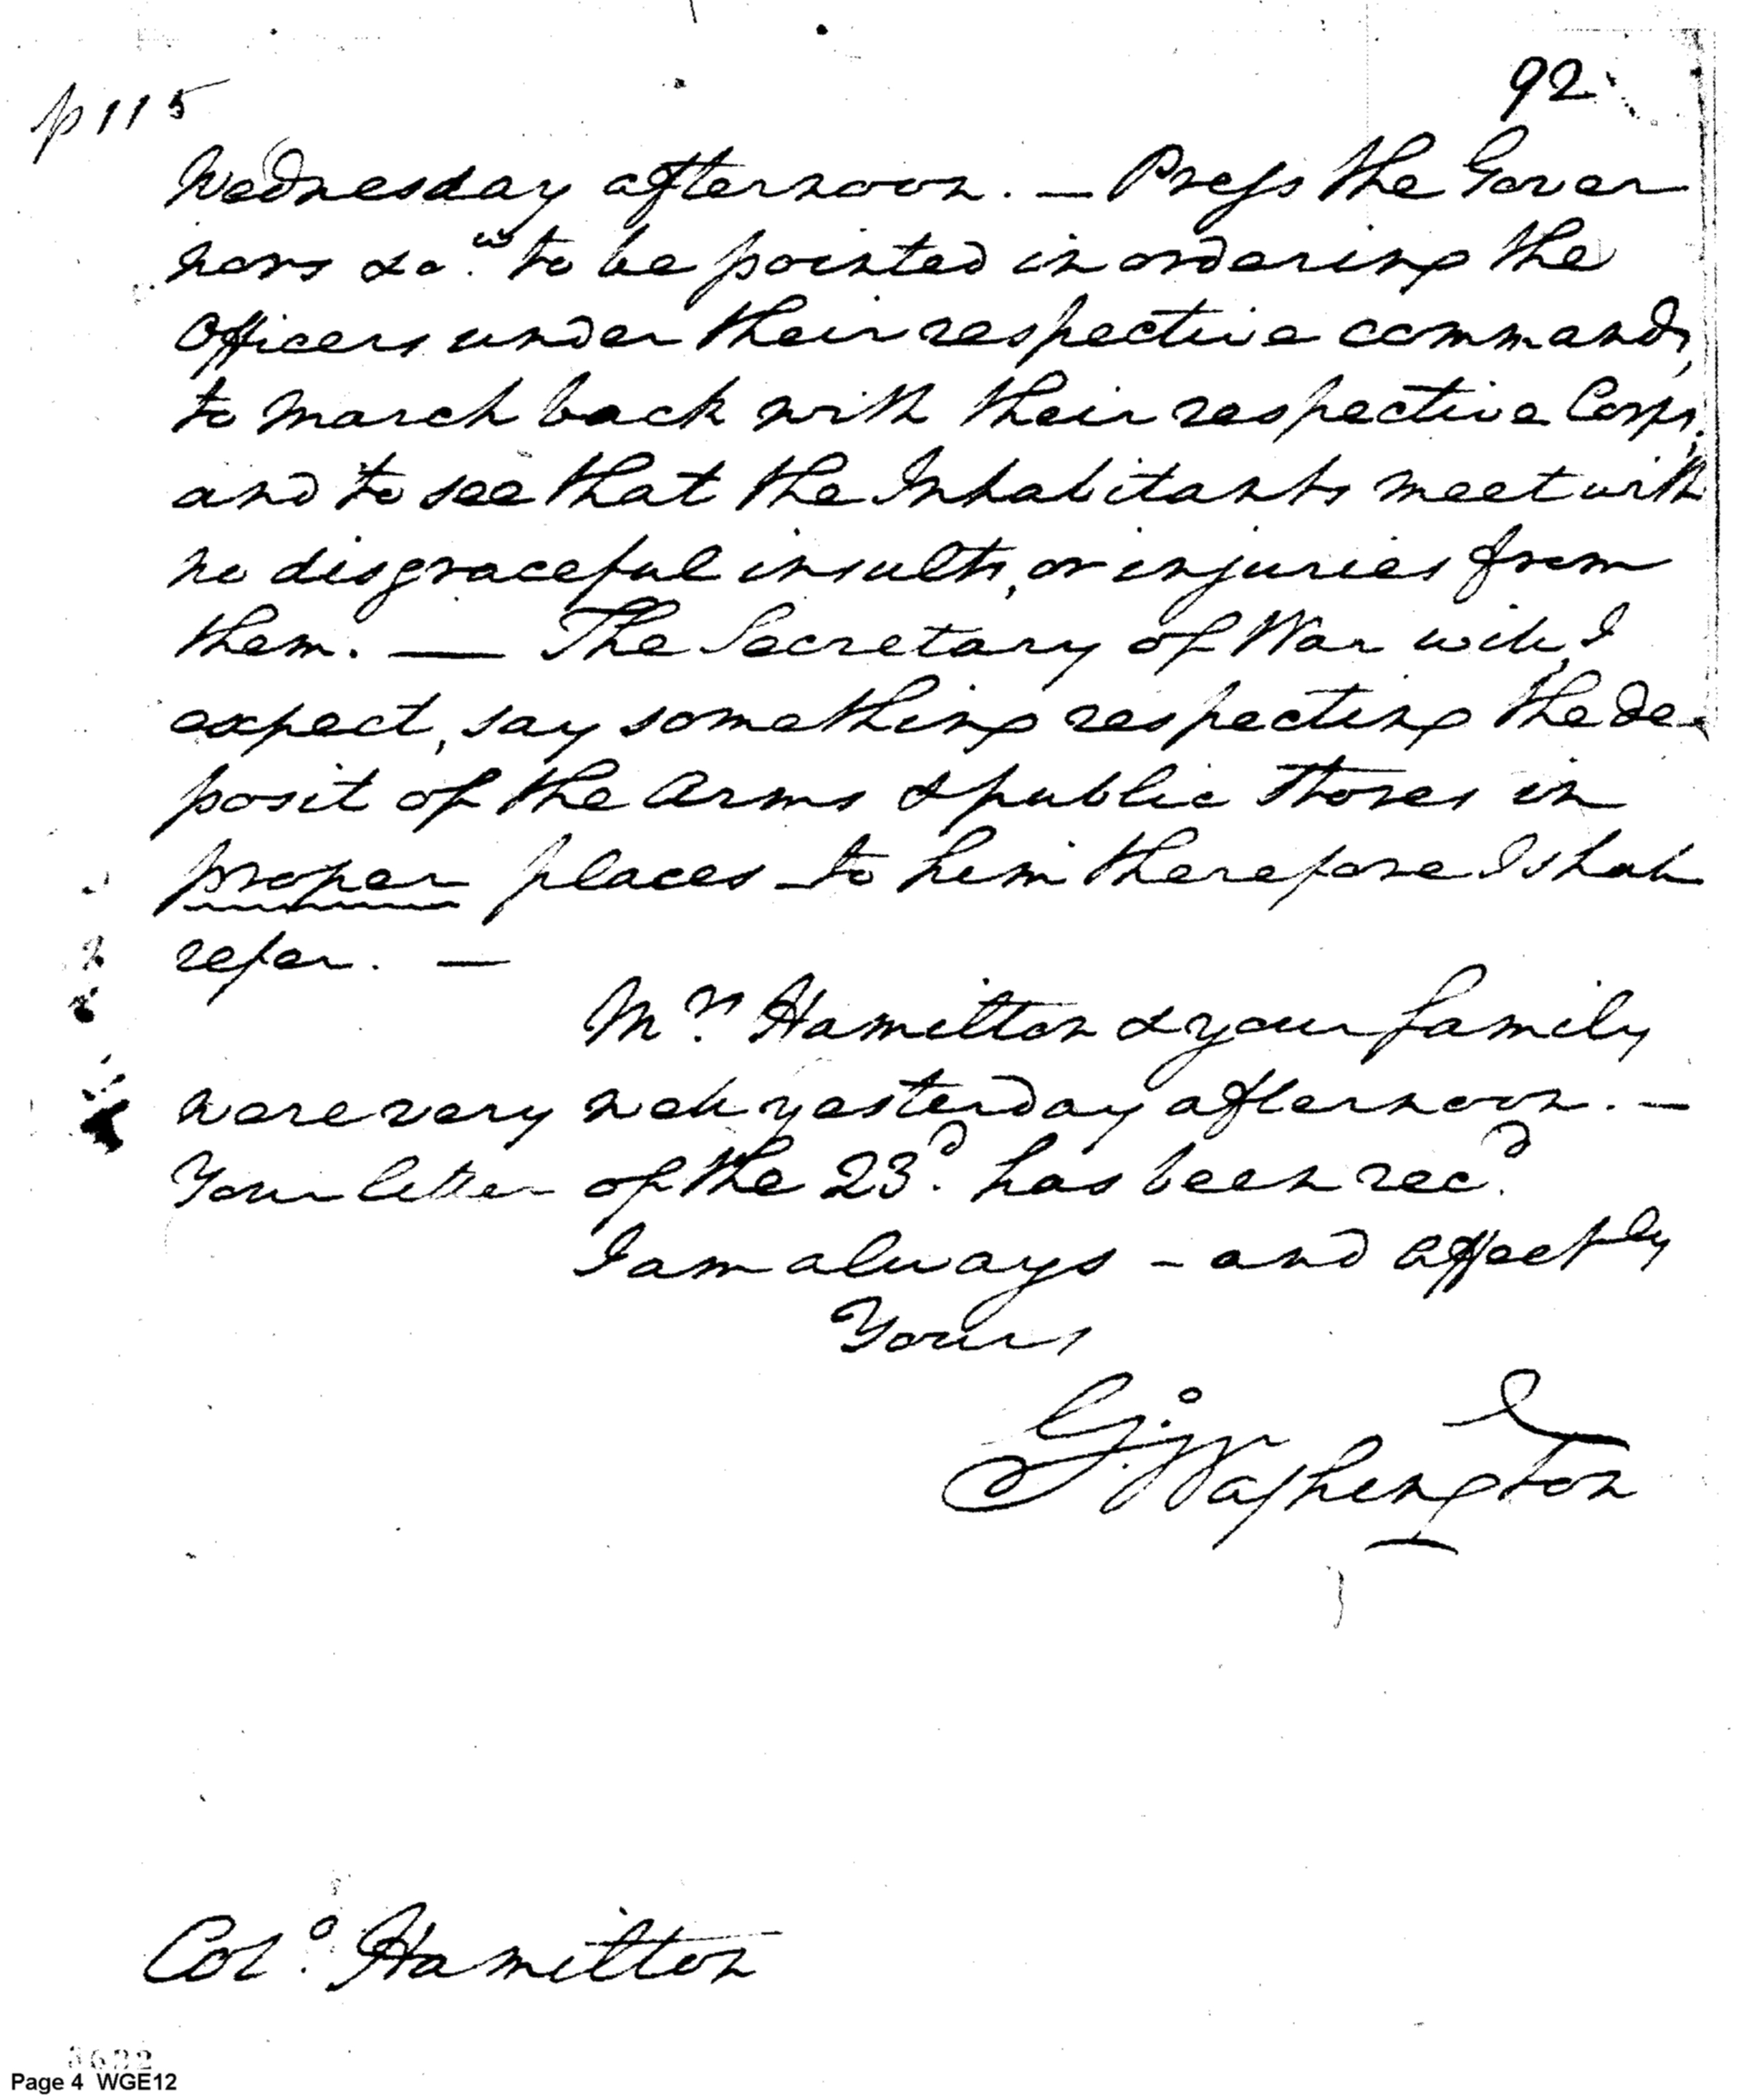 p 115
92
Wednesday afternoon. — Press the Gover
nors &ca. to be pointed in ordering the
Officers under their respective commands,
to march back with their respective Corps,
and to see that the Inhabitants meet with
no disgraceful insults, or injuries from
them. — The Secretary of War will, I
expect, say something respecting the de-
posit of the Arms & public Stores in
proper places to him therefore I shall
refer. —
Mrs. Hamilton & your family
were very well yesterday afternoon. —
Your letter of the 23d. has been recd.
I am always - and affectly
Yours
Go: Washington
Colo. Hamilton
Page 4 WGE12